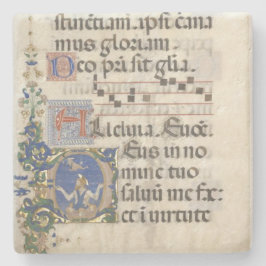 ſtinctiani. ipſi cana
mus gloriam
Deo pri ſit glia.
Alleluia. Euoe.
Deus in no
mine tuo
ſaluū me fac
et i uirtute